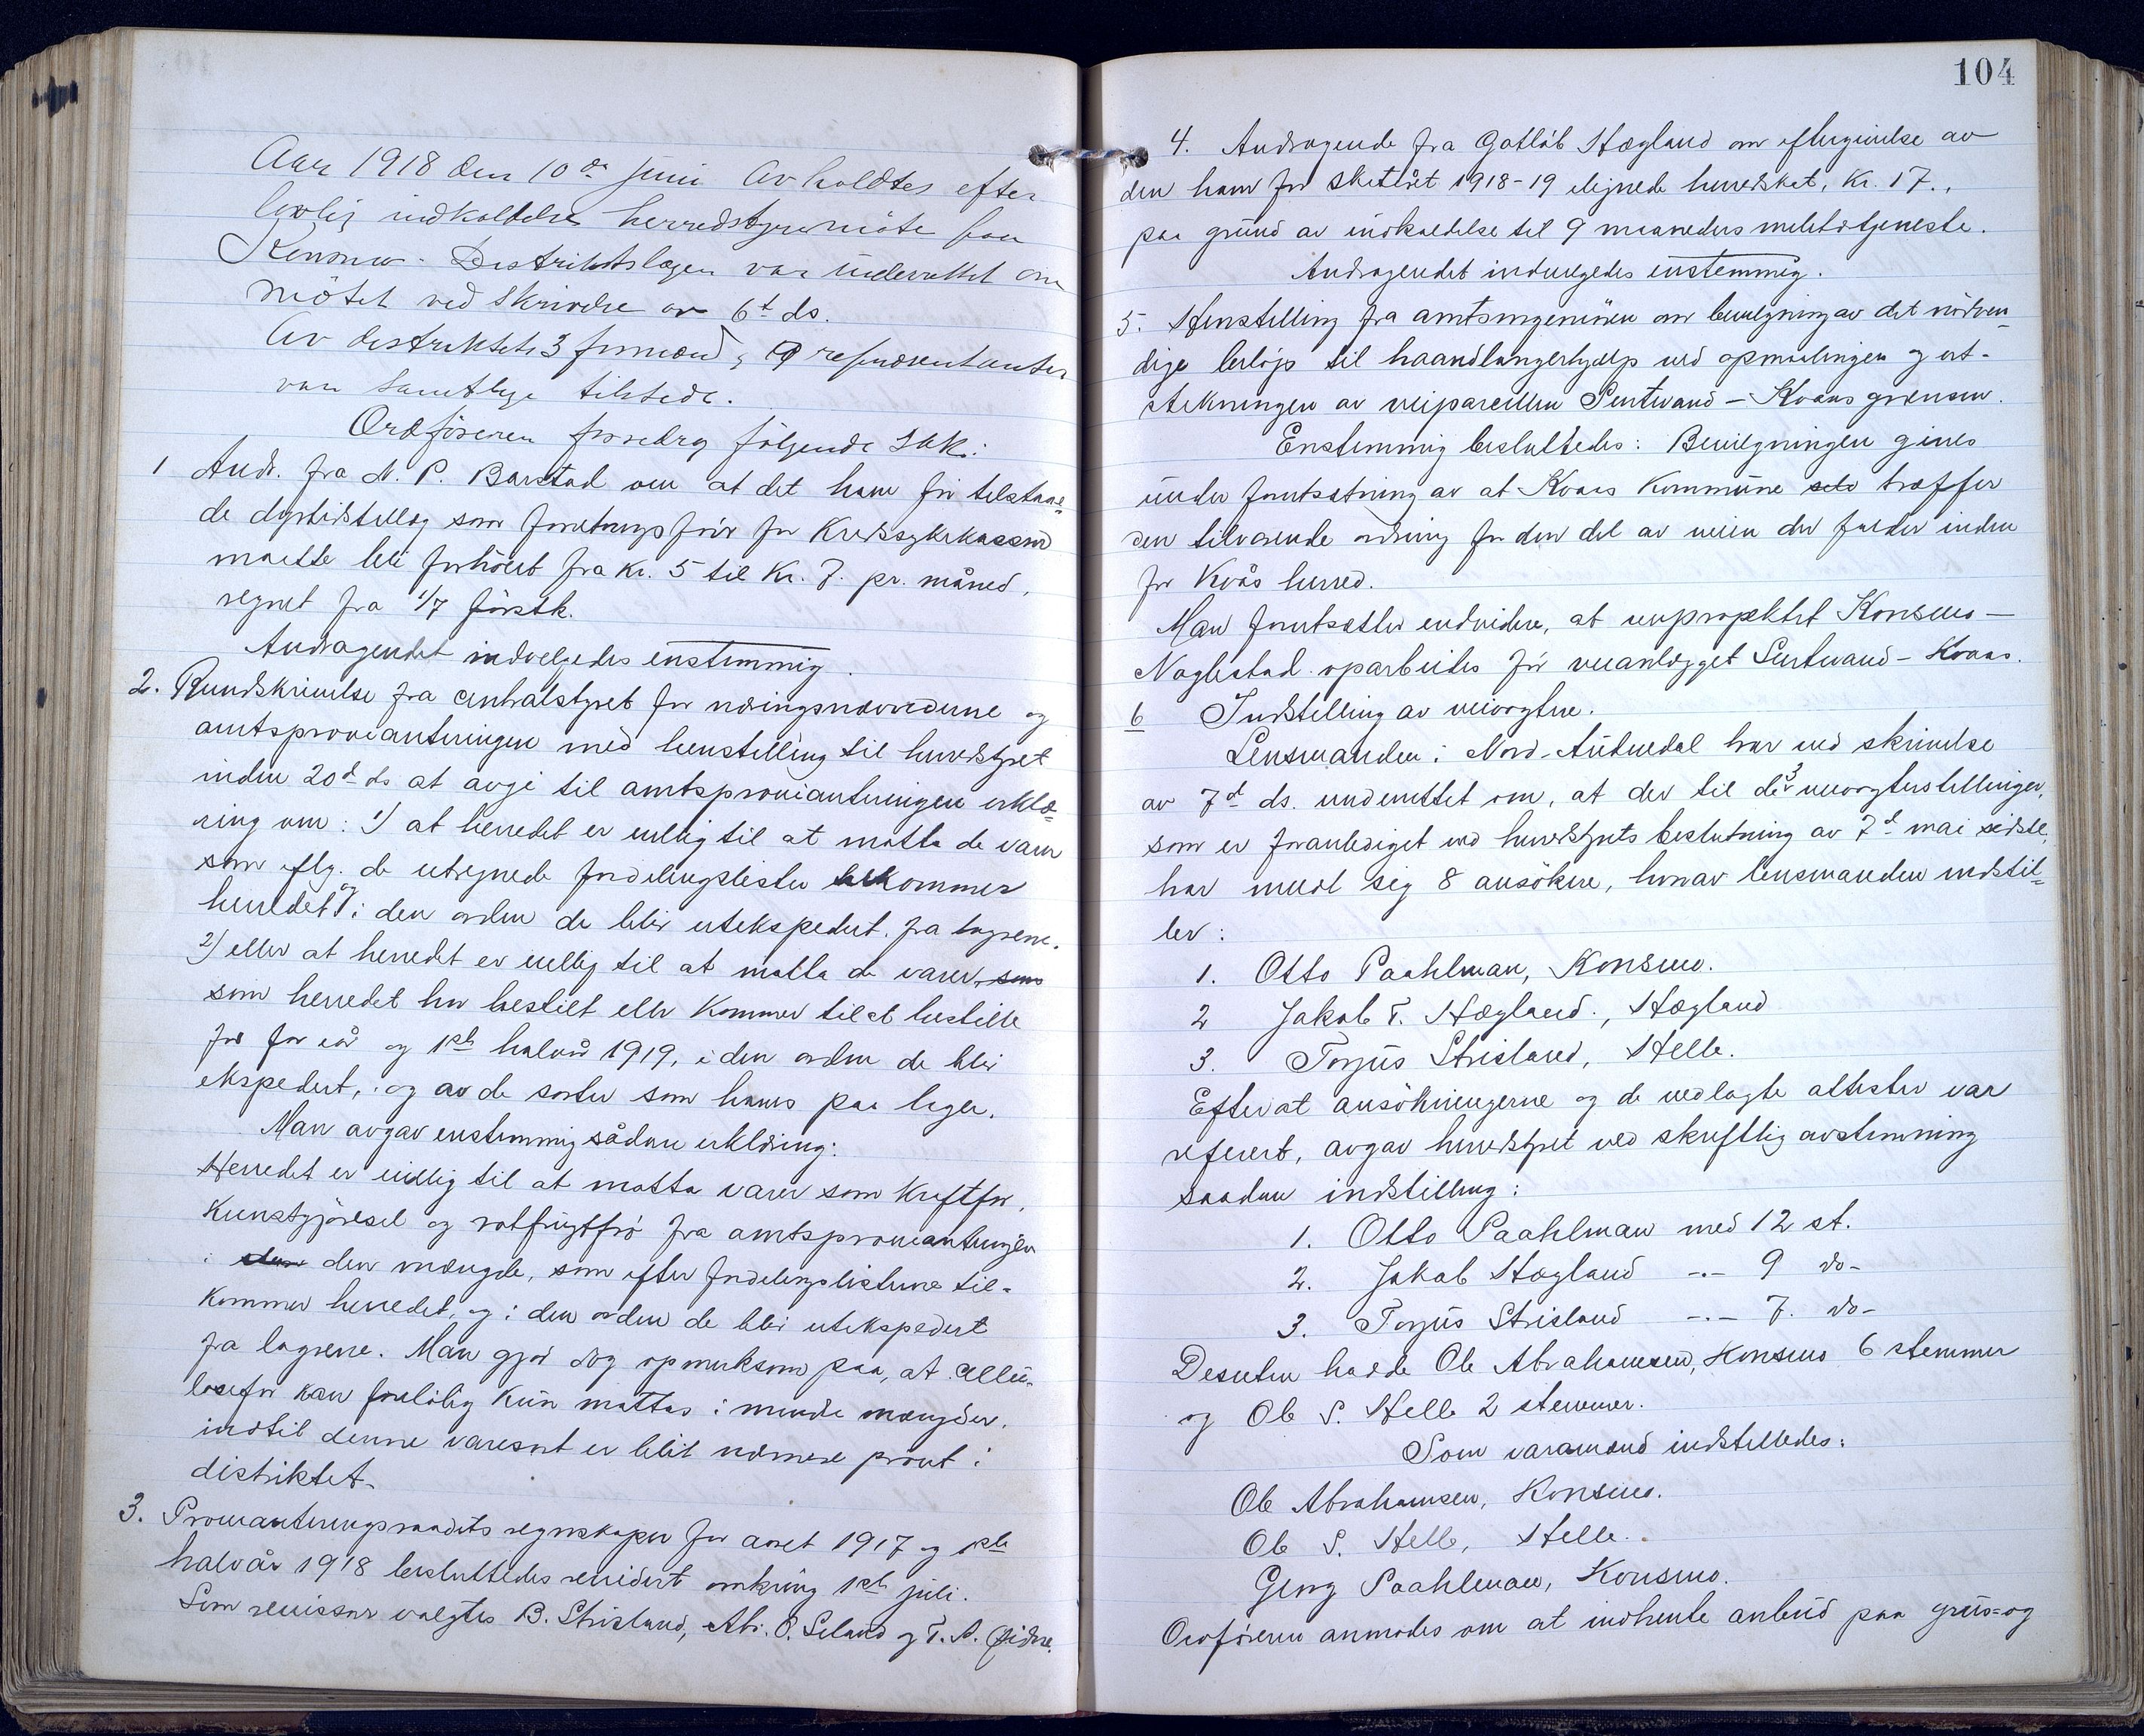 Aar 1918 den 10de juni avholdtes efter
lovlig indkaldelse herredstyremöte paa
Konsmo. Distriktslægen var underrettet om
mötet ved skrivelse av 6t ds.
Av distriktets 3 formænd, 9 repræsentanter
var samtlige tilstede.
Ordföreren foredrog fölgende sak:
1 Andr. fra N. P. Barstad om at det ham för tilstaae-
de dyrtidstillæg som forretningsförer for Kredssykekassen
maatte bli forhöiet fra kr. 5 til kr. 7. pr. måned,
regnet fra 1/7 förstk.
Andragendet indvelgedes enstemmig.
2. Rundskrivelse fra centralstyret for næringsnævndene og
amtsprovianteringen med henstilling til herredstyret
inden 20d ds at avgi til amtsprovianteringen erklæ-
ring om: 1) at herredet er villig til at motta de varer
som iflg. de utregnede fordelingslister tilkommer
herredet og i den orden de blir utekspedert fra lagrene.
2) eller at herredet er villig til at motta de varer, som
som herredet har bestilt eller kommer til at bestille
for iår og 1ste halvår 1919, i den orden de blir
ekspedert, og av de sorter som haves paa lager.
Man avgav enstemmig sådan erklæring:
Herredet er villig til at motta varer som kraftfor,
kunstgjödsel og rotfrugtfrö fra amtsprovianteringen
i den mængde, som efter fordelingslisterne til-
kommer herredet, og i den orden de blir utekspedert
fra lagrene. Man gjör dog opmerksom paa, at cellu-
losefor kan foreløbig kun mottas i mindre mængder,
indtil denne varesort er blit nærmere prövet i
distriktet.
3. Provianteringsraadets regnskaper for aaret 1917 og 1ste
halvår 1918 besluttedes revidert omkring 1ste juli.
Som revisorer valgtes B. Strisland, Abr. O. Seland og T. A. Øidne.
104
4. Andragende fra Gotlöb Hægland om eftergivelse av
den ham for skatåret 1918-19 ilignede herredskat, kr. 17.,
paa grund av indkaldelse til 9 maaneders militærtjeneste.
Andragendet indvelgedes enstemmig.
5. Henstilling fra amtsingeniören om bevilgning av det nödven-
dige belöp til haandlangerhjælp ved opmaalingen og ut-
stikningen av veiparcellen Sentvand - Kvaasgrænsen.
Enstemmig besluttedes: Bevilgningen gives
under forutsætning av at Kvaas kommune selv træffer
den tilsvarende ordning for den del av veien der falder inden
for Kvås herred.
Man forutsætter endvidere, at veiprosjektet Konsmo -
Noglestad oparbeides för veianlægget Sentvand - Kvaas.
6 Indstilling av veivogtere.
Lensmanden i Nord-Audnedal har ved skrivelse
av 7d ds. underrettet om, at der til de 3 veivogterstillinger,
som er foranlediget ved herredstyrets beslutning av 7d mai sidstl.
har meldt sig 8 ansökere, hvorav lensmanden indstil-
ler:
1. Otto Paahlman, Konsmo.
2 Jakob T. Hægland., Hægland
3. Torjus Strisland, Helle.
Efter at ansökningerne og de vedlagte attester var
referert, avgav herredstyret ved skriftlig avstemning
saadan indstilling:
1. Otto Paahlman med 12 st.
2. Jakob Hægland -.- 9 do-
3. Torjus Strisland -.- 7. do-
Desuten hadde Ole Abrahamsen, Konsmo 6 stemmer
og Ole S. Helle 2 stemmer.
Som varamænd indstilledes:
Ole Abrahamsen, Konsmo.
Ole S. Helle, Helle.
Georg Paahlman, Konsmo.
Ordföreren anmodes om at indhente anbud paa grus- og